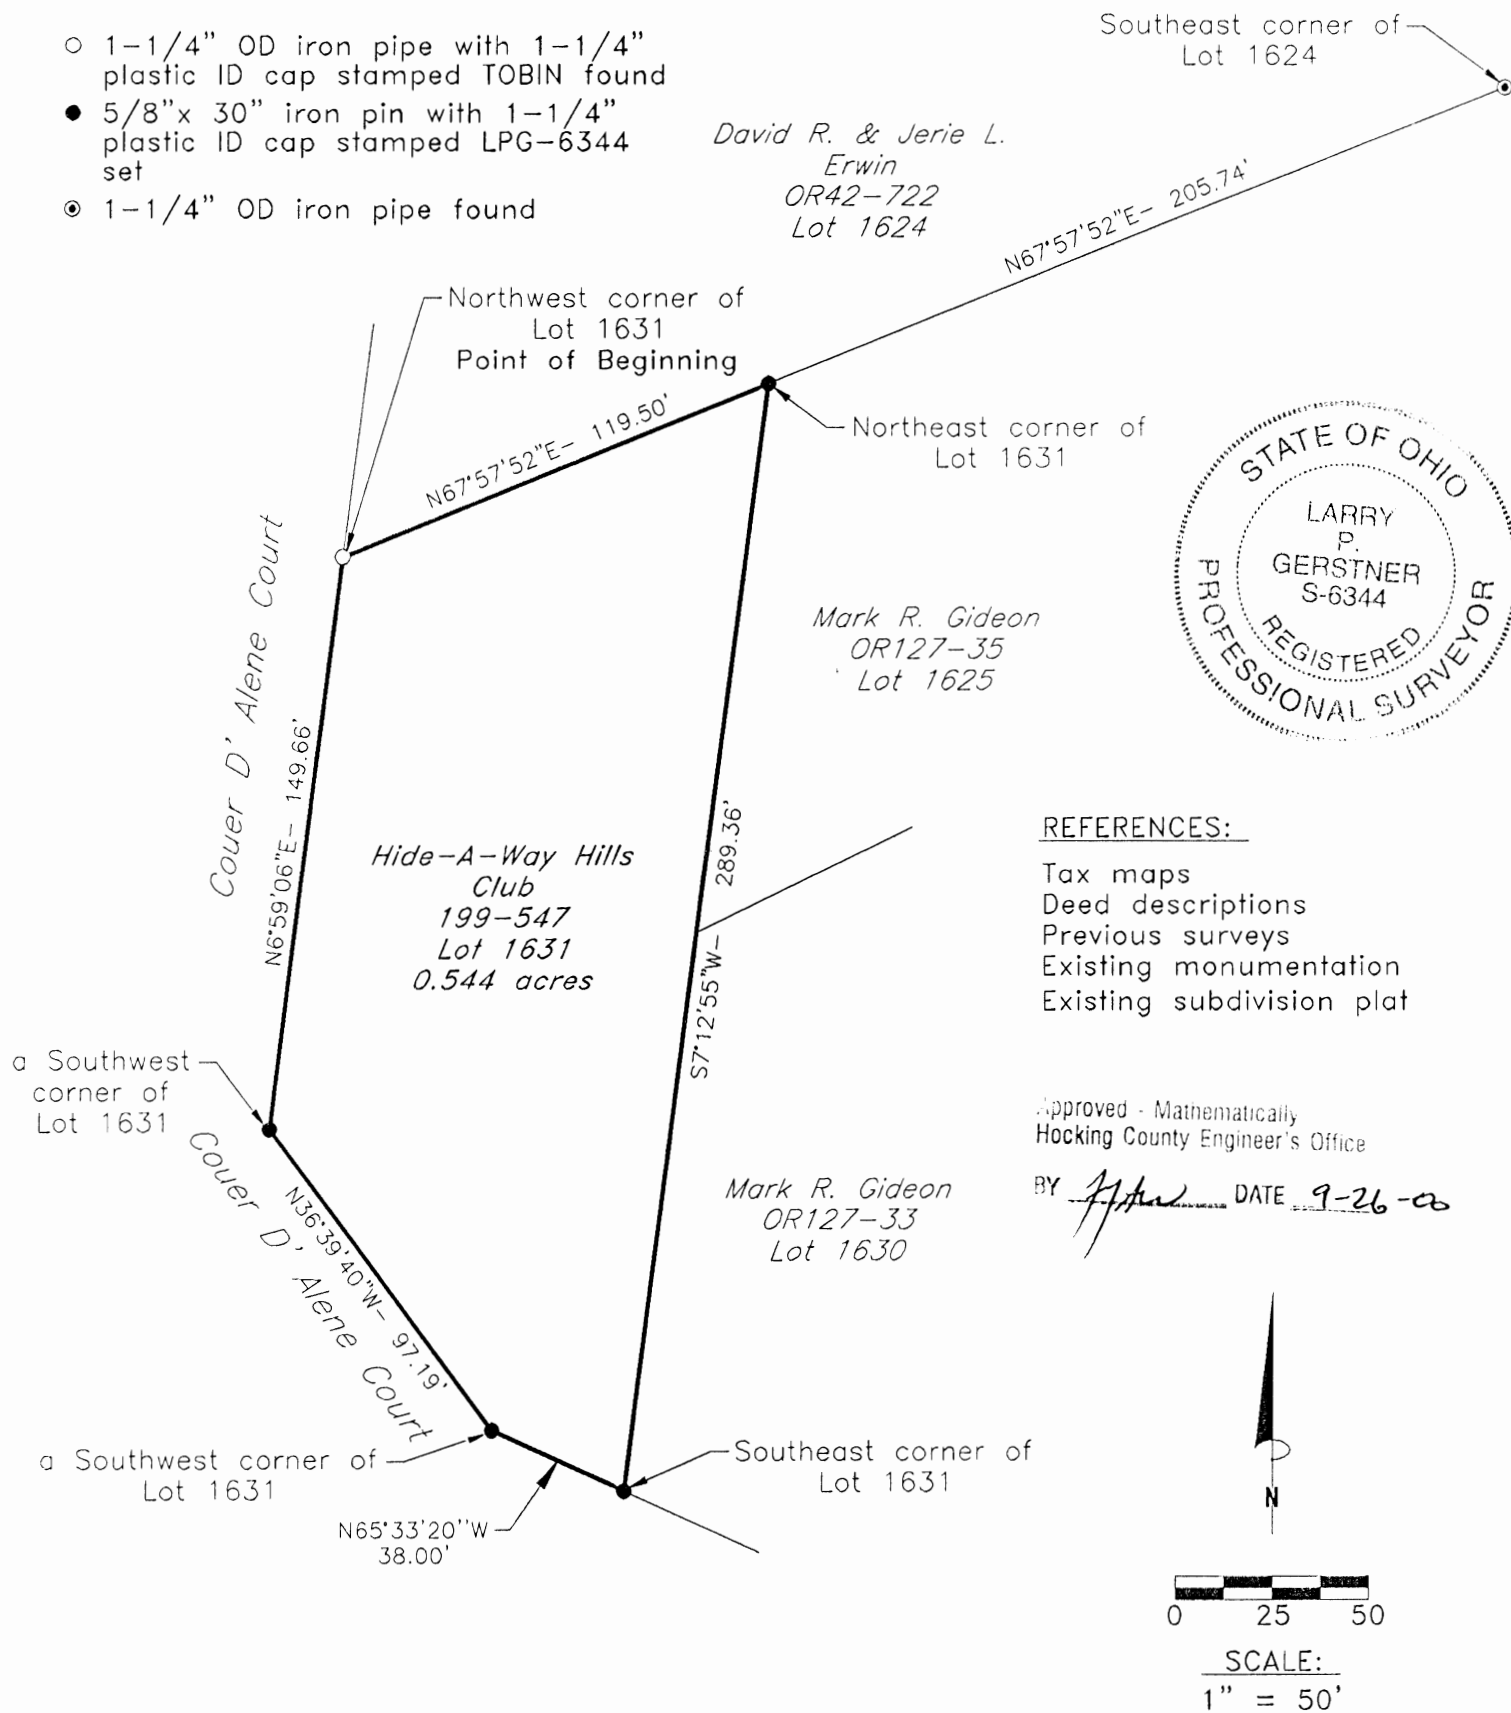 ○ 1-1/4" OD iron pipe with 1-1/4"
plastic ID cap stamped TOBIN found
● 5/8"x 30" iron pin with 1-1/4"
plastic ID cap stamped LPG-6344
set
◉ 1-1/4" OD iron pipe found
Southeast corner of
Lot 1624
David R. & Jerie L.
Erwin
OR42-722
Lot 1624
N67°57'52"E- 205.74'
Northwest corner of
Lot 1631
Point of Beginning
N67°57'52"E- 119.50'
Northeast corner of
Lot 1631
STATE OF OHIO
LARRY
P.
GERSTNER
S-6344
REGISTERED
PROFESSIONAL SURVEYOR
Couer D' Alene Court
N6°59'06"E- 149.66'
Mark R. Gideon
OR127-35
Lot 1625
Hide-A-Way Hills
Club
199-547
Lot 1631
0.544 acres
S7°12'55"W- 289.36'
REFERENCES:
Tax maps
Deed descriptions
Previous surveys
Existing monumentation
Existing subdivision plat
a Southwest
corner of
Lot 1631
Couer D' Alene Court
N36°39'40"W- 97.19'
Mark R. Gideon
OR127-33
Lot 1630
Approved - Mathematically
Hocking County Engineer's Office
BY DATE 9-26-00
a Southwest corner of
Lot 1631
Southeast corner of
Lot 1631
N65°33'20"W
38.00'
N
0 25 50
SCALE:
1" = 50'